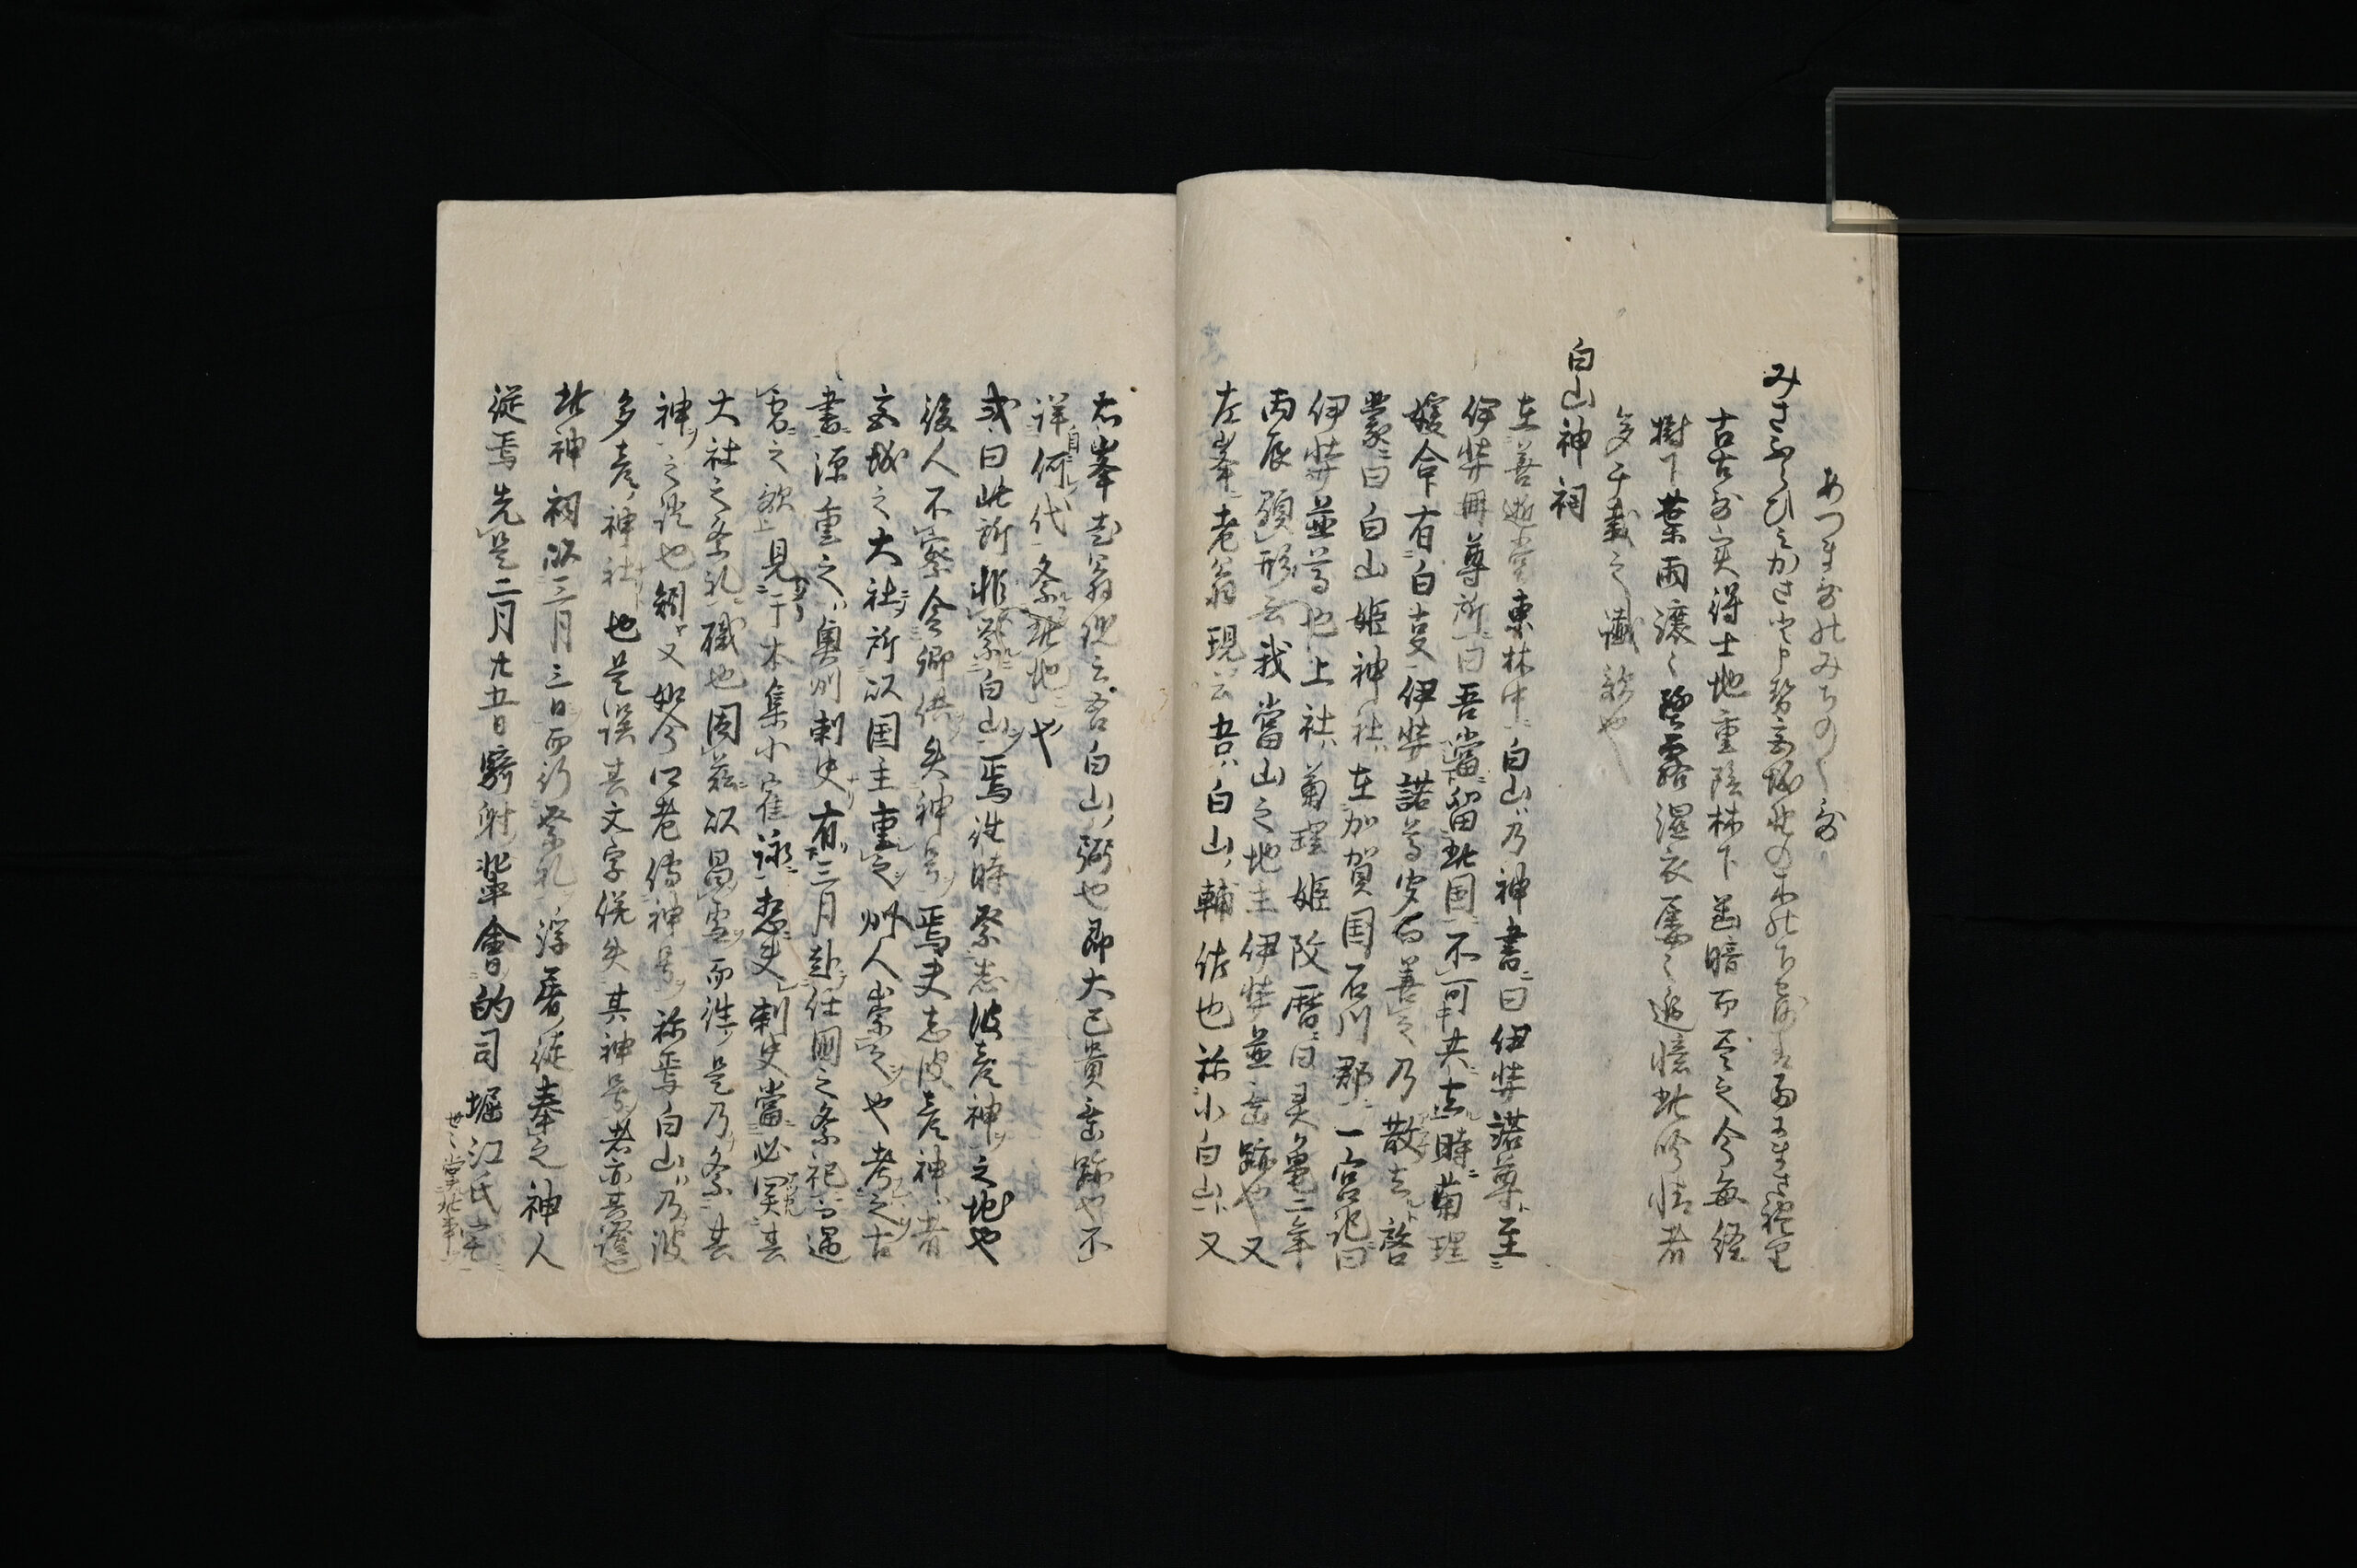 みさふらひみかさと申せ宮城野の木の下露は雨にまされり
樹下葉雨瀼々墮露湿衣屡々追憶此吟情者
多千載之讖歟也
白山神祠
在善逝堂東林中白山乃神書曰伊弉諾尊至
伊弉冊尊所曰吾當留此国不可共去時菊理
媛命有白事伊弉諾尊聞而善之乃散去啓
蒙曰白山姫神社在加賀国石川郡一宮記曰
伊弉並尊也上社菊理姫改暦曰灵亀二年
丙辰顕形云我當山之地主伊弉並垂跡也又
左峯老翁現云吾白山輔佐也称小白山又
右峯老翁現云吾白山弼也即大己貴垂跡也不
詳自何代祭此地也
或曰此所非祭白山焉往時祭志波彦神之地也
後人不察令郷俗失神号焉夫志波彦神者
宮城之大社所以国主重之州人崇之也考之古
書源重之奥州刺史有三月赴任國之祭祀遇
雹之歌上見于木集小寉詠恵史刺史當必関其
大社之祭礼職也因茲以冒雹而往是乃祭其
神之證也剰又如今口老傳神号称焉白山乃波
多彦神社也是誤其文字併失其神号者亦其證也
此神祠以三月三日而行祭礼浮屠徒奉之神人
従焉先是二月廿五日騎射輩會的司堀江氏
世々掌此事